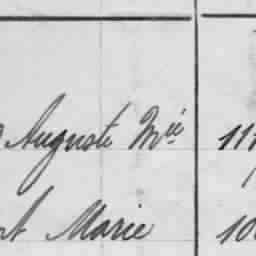 Auguste Mie 11
Marie 10